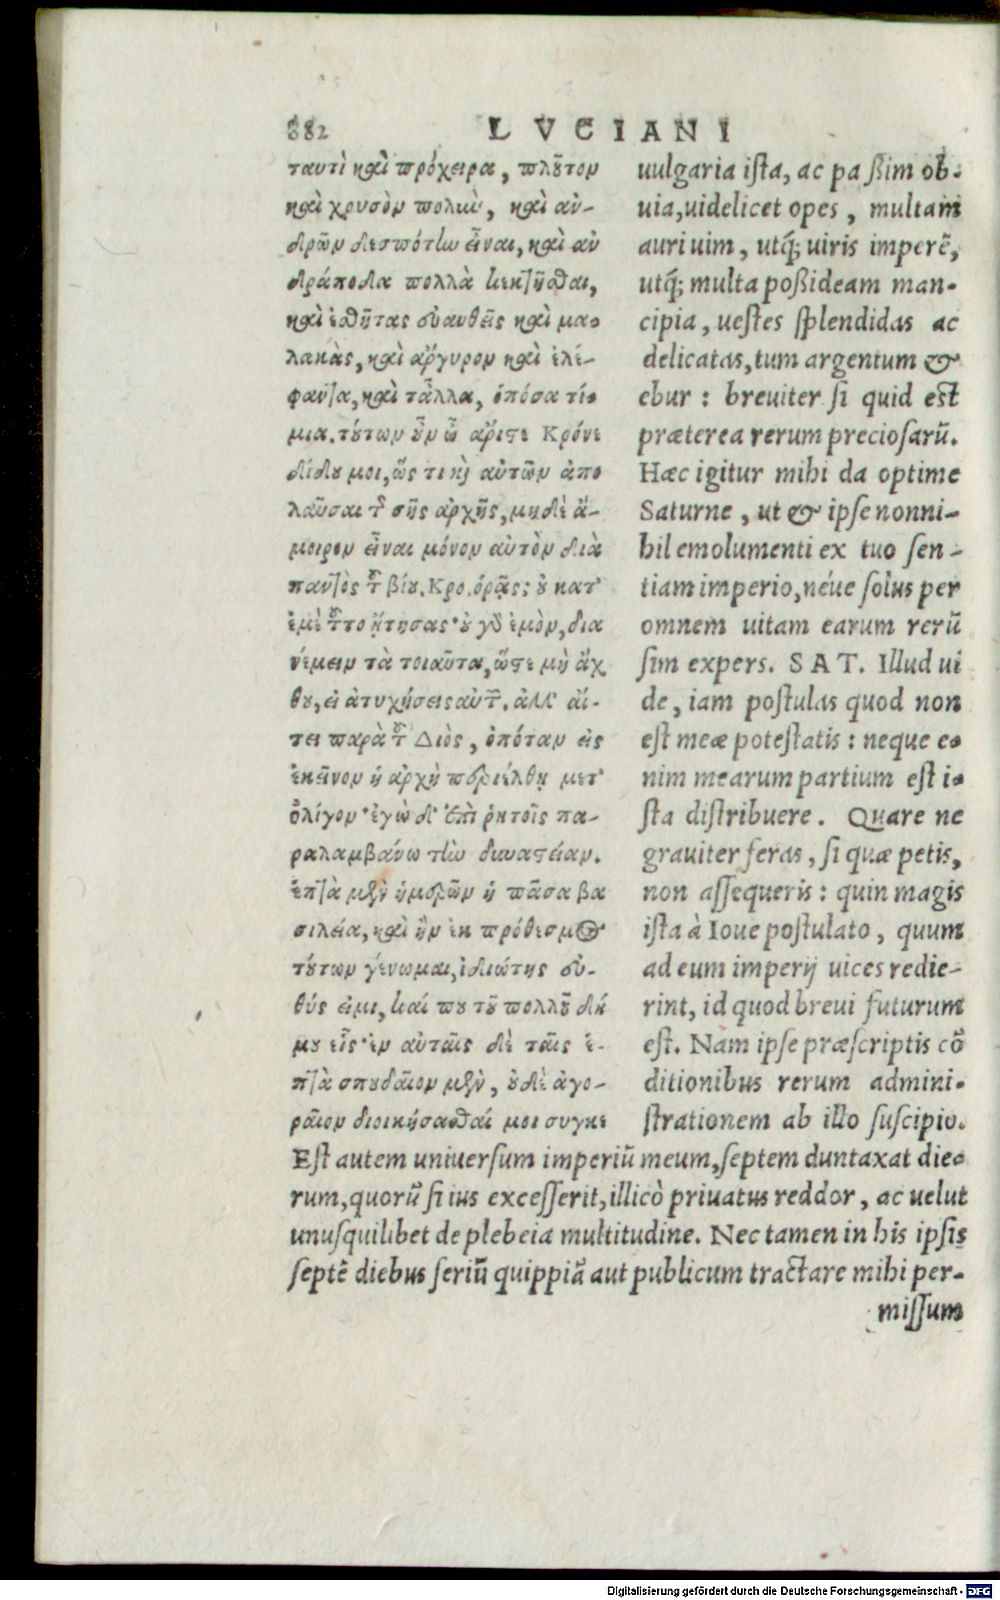 882 LVCIANI
ταυτὶ καὶ πρόχειρα, πλοῦτον
καὶ χρυσὸν πολιὺ, καὶ ἀν-
δρῶν δεσπότην εἶναι, καὶ ἀν
δράποδα πολλὰ κεκτῆσθαι,
καὶ ἐσθῆτας εὐανθεῖς καὶ μα-
λακὰς, καὶ ἄργυρον καὶ ἐλέ-
φαντα, καὶ τἆλλα, ὁπόσα τί-
μια. τούτων οὖν ὦ ἄριστε Κρόνε
δίδου μοι, ὥς τι καὶ αὐτῶν ἀπο
λαῦσαι τῆς σῆς ἀρχῆς, μηδὲ ἄ-
μοιρον εἶναι μόνον αὐτὸν διὰ
παντὸς τοῦ βίου. Κρο. ὁρᾷς; οὐ κατ'
ἐμὲ τοῦτο ᾔτησας· οὐ γὰρ ἐμὸν, δια
νέμειν τὰ τοιαῦτα, ὥστε μὴ ἄχ
θου, εἰ ἀτυχήσεις αὐτῶν. ἀλλ' αἴ-
τει παρὰ τοῦ Διὸς, ὁπόταν εἰς
ἐκεῖνον ἡ ἀρχὴ περιέλθῃ μετ'
ὀλίγον· ἐγὼ δ' ἐπὶ ῥητοῖς πα-
ραλαμβάνω τὴν δυναστείαν.
ἑπτὰ μὲν ἡμερῶν ἡ πᾶσα βα
σιλεία, καὶ ἢν ἐκ πρόθεσμος
τούτων γένωμαι, ἰδιώτης εὐ-
θύς εἰμι, καί που τοῦ πολλοῦ δή
μου εἷς· ἐν αὐταῖς δὲ ταῖς ἑ-
πτὰ σπουδαῖον μὲν, οὐδὲ ἀγο-
ραῖον διοικήσασθαί μοι συγκε
uulgaria ista, ac passim ob-
uia, uidelicet opes, multam
auri uim, utq; uiris imperē,
utq́; multa possideam man-
cipia, uestes splendidas ac
delicatas, tum argentum &
ebur: breuiter si quid est
præterea rerum preciosarū.
Hæc igitur mihi da optime
Saturne, ut & ipse nonni-
hil emolumenti ex tuo sen-
tiam imperio, néue solus per
omnem uitam earum rerū
sim expers. SAT. Illud ui
de, iam postulas quod non
est meæ potestatis: neque e-
nim mearum partium est i-
sta distribuere. Quare ne
grauiter feras, si quæ petis,
non assequeris: quin magis
ista à Ioue postulato, quum
ad eum imperij uices redie-
rint, id quod breui futurum
est. Nam ipse præscriptis cō
ditionibus rerum admini-
strationem ab illo suscipio.
Est autem uniuersum imperiū meum, septem duntaxat die-
rum, quorū si ius excesserit, illicò priuatus reddor, ac uelut
unusquilibet de plebeia multitudine. Nec tamen in his ipsis
septē diebus seriū quippiā aut publicum tractare mihi per-
missum
Digitalisierung gefördert durch die Deutsche Forschungsgemeinschaft - DFG